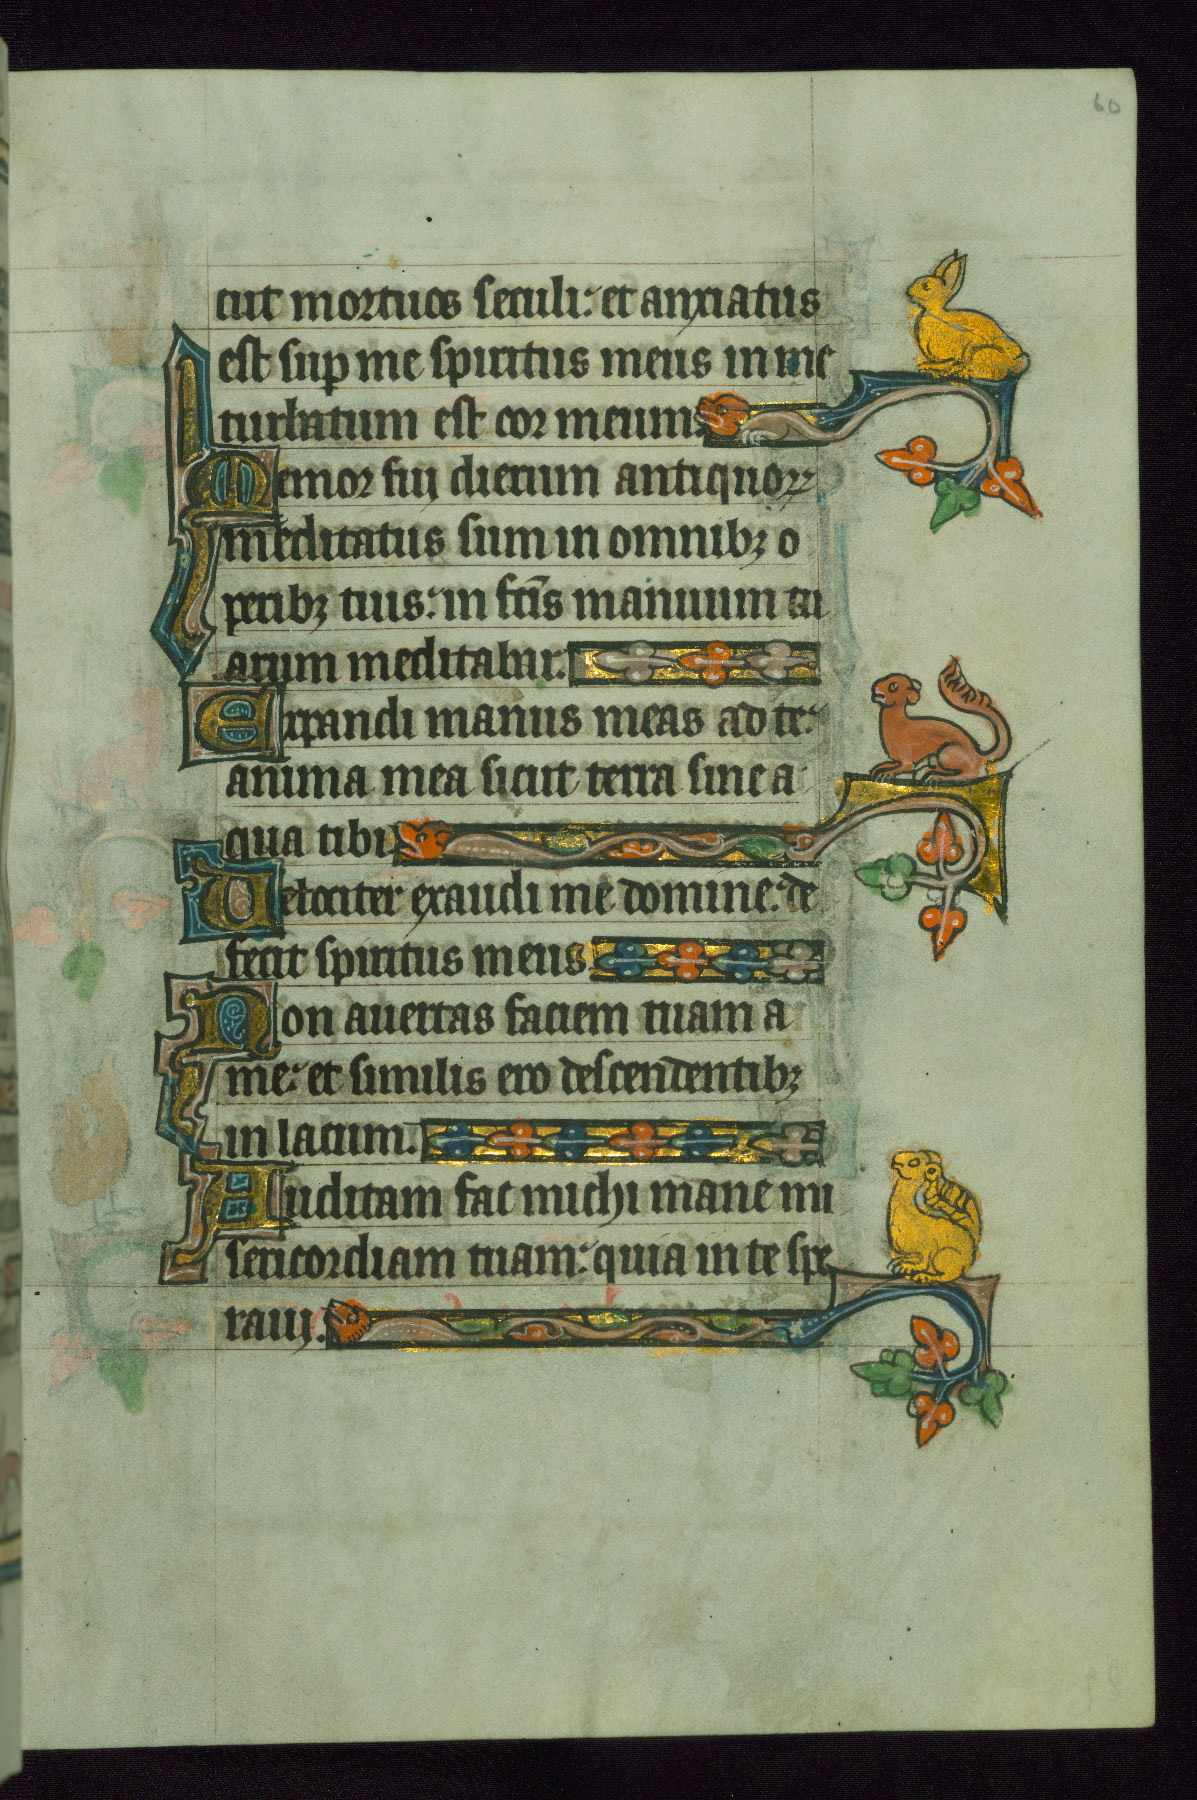 60
cut mortuos seculi: et anxiatus
est sup me spiritus meus in me
turbatum est cor meum
Memor fui dierum antiquorꝝ
meditatus sum in omnibꝫ o
peribꝫ tuis: in fc̄is manuum tu
arum meditabar.
Expandi manus meas ad te:
anima mea sicut terra sine a
qua tibi
Velociter exaudi me domine: de
fecit spiritus meus
Non auertas faciem tuam a
me: et similis ero descendentibꝫ
in lacum.
Auditam fac michi mane mi
sericordiam tuam: quia in te spe
raui.